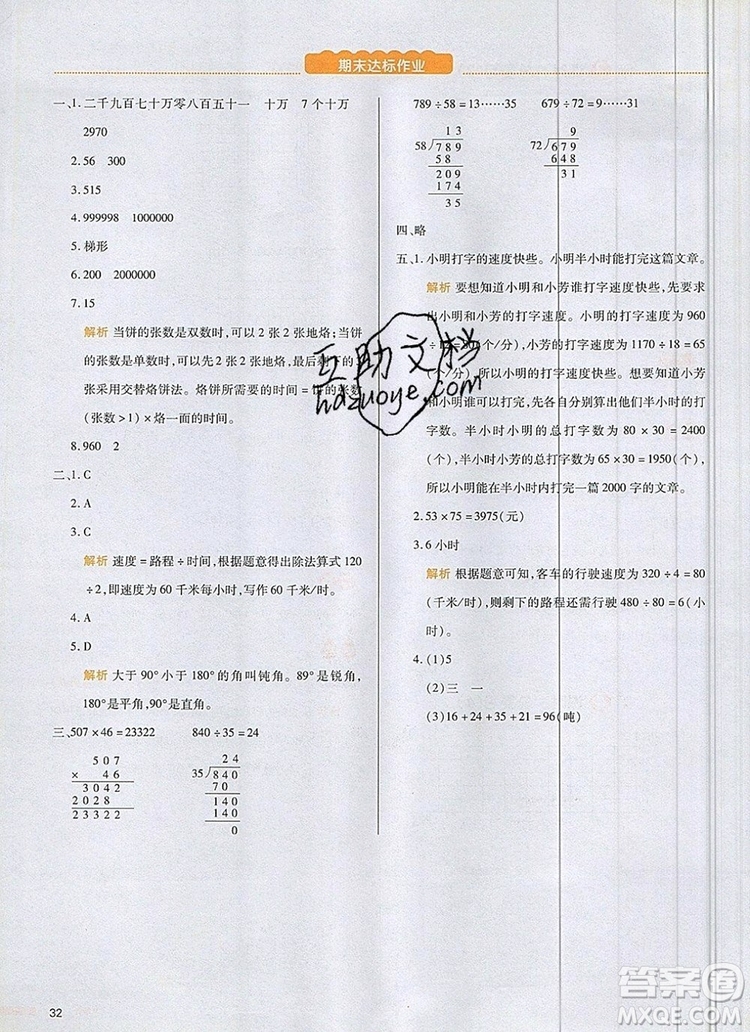 期末达标作业
一、1. 二千九百七十万零八百五十一 十万 7 个十万
2970
2. 56 300
3. 515
4. 999998 1000000
5. 梯形
6. 200 2000000
7. 15
解析 当饼的张数是双数时，可以 2 张 2 张地烙；当饼
的张数是单数时，可以先 2 张 2 张地烙，剩下的 3
张采用交替烙饼法。烙饼所需的时间=饼的张数
(张数>1)×烙一面的时间。
8. 960 2
二、1. C
2. A
3. C
解析 速度=路程÷时间，根据题意得出除法算式 120
÷2，即速度为 60 千米每小时，写作 60千米/时。
4. A
5. D
解析 大于 90°小于 180°的角叫钝角。89°是锐角，
180°是平角，90°是直角。
三、507×46=23322 840÷35=24
507
× 46
3042
2028
23322
24
35 840
70
140
140
0
789÷58=13……35 679÷72=9……31
13
58 789
58
209
174
35
9
72 679
648
31
四、略
五、1. 小明打字的速度快些。小明半小时能打完这篇文章。
解析 要想知道小明和小芳谁打字速度快些，先要求
出小明和小芳的打字速度。小明的打字速度为 960
÷12=80(个/分)，小芳的打字速度为 1170÷18=65
(个/分)，所以小明的打字速度快些。想要知道小明
和小芳谁能在半小时内打完一篇 2000 字的文
章，先各自分别算出他们半小时的打
字数。半小时小明的总打字数为 80×30=2400
(个)，半小时小芳的总打字数为 65×30=1950(个)，
所以小明能在半小时内打完一篇 2000 字的文章。
2. 53×75=3975(元)
3. 6 小时
解析 根据题意可知，客车的行驶速度为 320÷4=80
(千米/时)，则剩下的路程还需行驶 480÷80=6(小
时)。
4. (1)5
(2)三 一
(3)16+24+35+21=96(吨)
32
互助文档
hdzuoye.com
答案圈
MXQE.COM